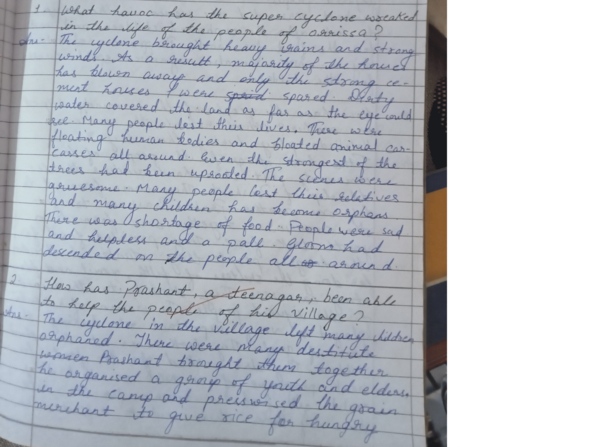 1. What havoc has the super cyclone wreaked
in the life of the people of orrissa?
Ans- The cyclone brought heavy rains and strong
winds. As a result, majority of the houses
has blown away and only the strong ce-
ment houses were spared. Dirty
water covered the land as far as the eye could
see. Many people lost their lives. There were
floating human bodies and bloated animal car-
casses all around. Even the strongest of the
trees had been uprooted. The scenes were
gruesome. Many people lost their relatives
and many children has become orphans.
There was shortage of food. People were sad
and helpless and a pall gloom had
descended on the people all around.
2. How has Prashant, a teenagar, been able
to help the people of his village?
Ans- The cyclone in the village left many children
orphaned. There were many destitute
women Prashant brought them together
he organised a group of youth and elders
in the camp and the grain
merchant to give rice for hungry